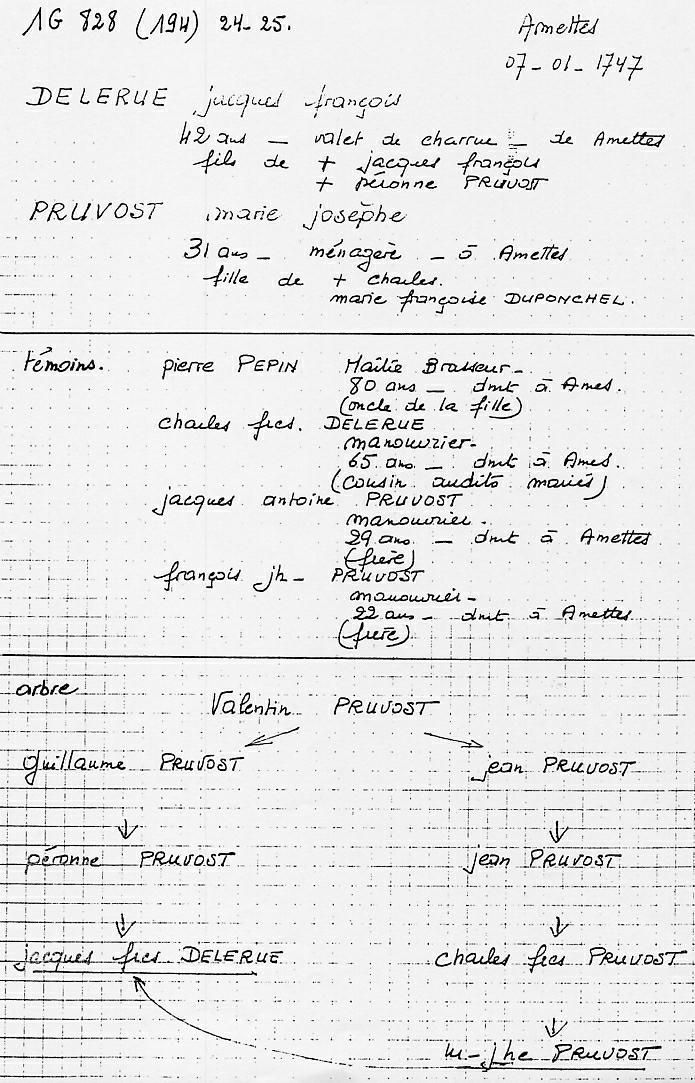 1G 828 (194) 24-25.
Amettes
07-01-1747
DELERUE jacques françois
42 ans — valet de charrue — de Amettes
fils de + jacques françois
+ péronne PRUVOST
PRUVOST marie josèphe
31 ans — ménagère — à Amettes
fille de + charles.
marie françoise DUPONCHEL.
témoins. pierre PEPIN Maître Brasseur -
80 ans — dmt à Ames.
(oncle de la fille)
charles fcs. DELERUE
manouvrier-
65 ans — dmt à Ames.
(cousin audits mariés)
jacques antoine PRUVOST
manouvrier.
29 ans — dmt à Amettes
(frère)
françois jh - PRUVOST
manouvrier -
22 ans - dmt à Amettes
(frère)
arbre
Valentin PRUVOST
guillaume PRUVOST jean PRUVOST
péronne PRUVOST jean PRUVOST
jacques fcs DELERUE charles fcs PRUVOST
m-jhe PRUVOST